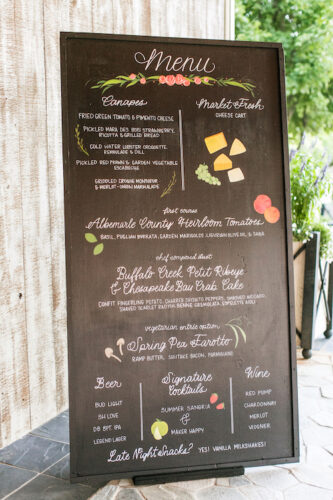 Menu
Canapes
FRIED GREEN TOMATO & PIMENTO CHEESE
PICKLED MARA DES BOIS STRAWBERRY,
RICOTTA & GRILLED BREAD
COLD WATER LOBSTER CROQUETTE,
REMOULADE & DILL
PICKLED RED PRAWN & GARDEN VEGETABLE
ESCABECHE
GRIDDLED CROQUE MONSIEUR
& MERLOT-ONION MARMALADE
Market Fresh
CHEESE CART
first course
Albemarle County Heirloom Tomatoes
BASIL, PUGLIAN BURRATA, GARDEN MARIGOLDS, LIGURIAN OLIVE OIL & SABA
chef composed duet
Buffalo Creek Petit Ribeye
& Chesapeake Bay Crab Cake
CONFIT FINGERLING POTATO, CHARRED SHISHITO PEPPERS, SMASHED AVOCADO,
SHAVED SCARLET RADISH, GREMOLATA,
vegetarian entrée option
Spring Pea Farotto
RAMP BUTTER, SHIITAKE BACON, PARMESAN
Beer
BUD LIGHT
3H LOVE
DB BPT IPA
LEGEND LAGER
Signature
Cocktails
SUMMER SANGRIA
&
MAKER HAPPY
Wine
RED PUMP
CHARDONNAY
MERLOT
VIOGNIER
Late Night Snacks? YES! VANILLA MILKSHAKES!